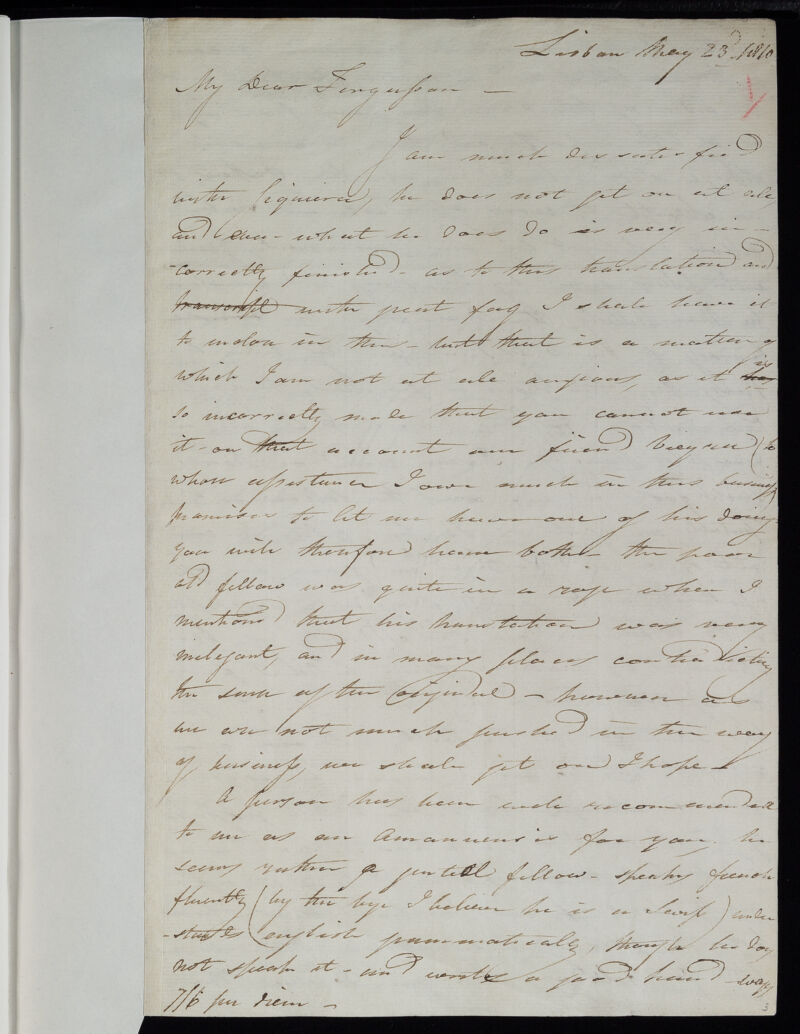 Lisbon May 23d. 1810
My Dear Fergusson —
I am much dissatisfied
with Siquiera, he does not get on at all,
and even - what he does do is very in-
-correctly finished - as to this translation and
transcript with great fag I shall have it
to inclose in this - but that is a matter of
which I am not at all anxious, as it has is
so incorrectly made that you cannot use
it - on that account our friend Vieyra (to
whose assistance I owe much in this business)
promises to let me have one of his doing
you will therefore have both - the poor
old fellow was quite in a rage when I
mentioned that his translation was very
inelegant, and in many places contradicting
the sense of the original - however as
we are not much pushed in the way
of business, we shall get on I hope -
A person has been well recommended
to me as an Amanuensis for you. he
seems rather a genteel fellow - speaks french
fluently (by the bye I believe he is a Swiss) under
-stands english grammatically, though he does
not speak it - and writes a good hand - says
7/6 per diem -
3